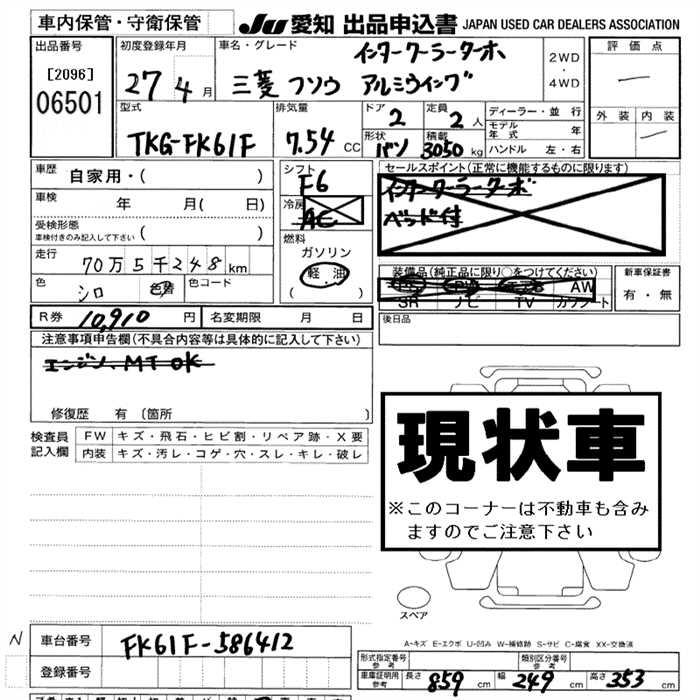 車内保管・守衛保管
JU 愛知 出品申込書 JAPAN USED CAR DEALERS ASSOCIATION
出品番号
[2096]
06501
初度登録年月
27年4月
車名・グレード
インタークーラーターボ
三菱 フソウ アルミウイング
2WD
・
4WD
評価点
ー
外装 内装
ー
型式
TKG-FK61F
排気量
7.54 CC
ドア
2
定員
2人
形状
バン
積載
3050 kg
ディーラー・並行
モデル年式 年
ハンドル 左・右
車歴
自家用・( )
車検 年 月( 日)
受検形態
車検付きのみ記入して下さい ( )
走行
70万5千248km
色
シロ
色替
色コード
シフト
F6
冷房
AC
燃料
ガソリン
軽油
( )
セールスポイント(正常に機能するものに限ります)
インタークーラーターボ
ベッド付
装備品(純正品に限り○をつけてください)
PS PW エアB AW
SR ナビ TV カワシート
新車保証書
有・無
R券 10,910円 名変期限 月 日
後日品
注意事項申告欄(不具合内容等は具体的に記入して下さい)
エンジン、MT OK
修復歴 有 〔箇所 〕
検査員記入欄
FW キズ・飛石・ヒビ割・リペア跡・X要
内装 キズ・汚レ・コゲ・穴・スレ・キレ・破レ
現状車
※このコーナーは不動車も含み
ますのでご注意下さい
スペア
A-キズ E-エクボ U-凹み W-補修跡 S-サビ C-腐食 XX-交換済
N
車台番号 FK61F-586412
登録番号
形式指定番号 参考
類別区分番号 参考
車庫証明用 参考 長さ 859 cm 幅 249 cm 高さ 353 cm